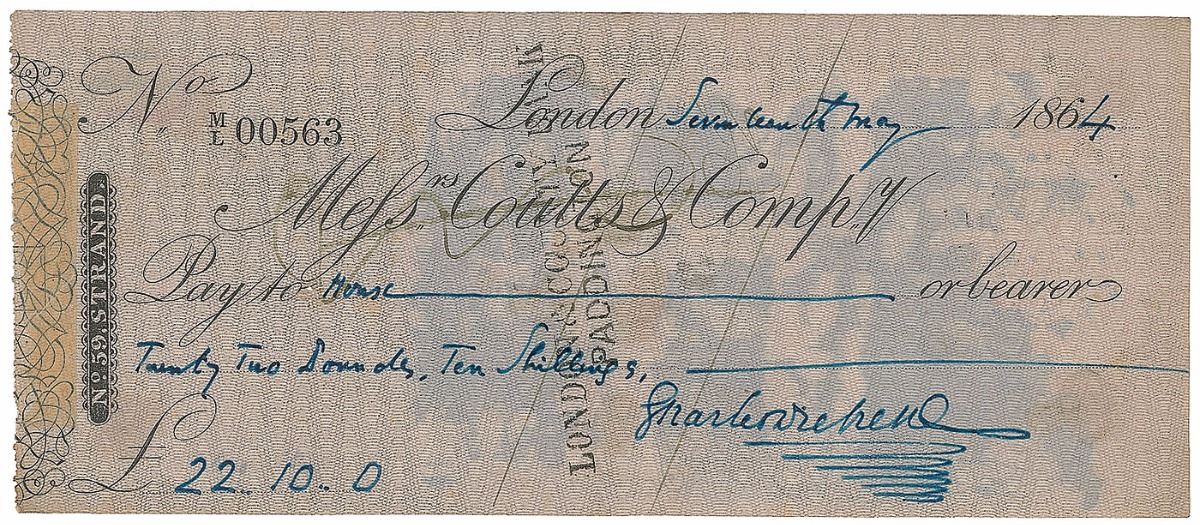 No. M/L 00563 London Seventeenth May 1864
Messrs. Coutts & Compy.
Pay to House or bearer
Twenty Two Pounds, Ten Shillings,
Charles Dickens
£ 22..10..0
No. 59. STRAND.
LONDON &
PADDINGTON